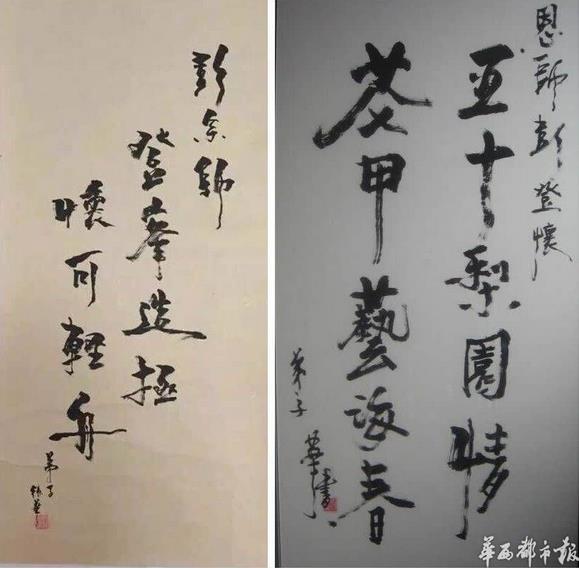 彭宗師
登峯造極
懷可輕舟
弟子
恩師彭登懷
五十梨園情
花甲藝海春
弟子
華西都市報